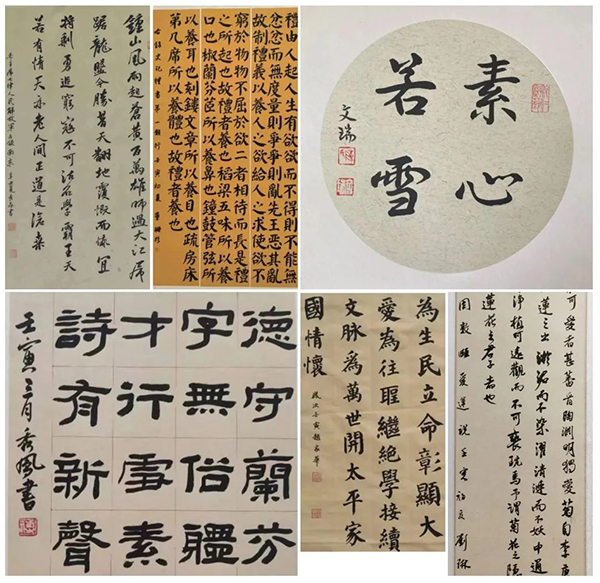 鍾山風雨起蒼黃百萬雄師過大江虎
踞龍盤今勝昔天翻地覆慨而慷宜
將剩勇追窮寇不可沽名學霸王天
若有情天亦老人間正道是滄桑
禮由人起人生有欲欲而不得則不能無
忿忿而無度量則爭爭則亂先王惡其亂
故制禮義以養人之欲給人之求使欲不
窮於物物不屈於欲二者相待而長是禮
之所起也故禮者養也稻粱五味所以養
口也椒蘭芬茝所以養鼻也鐘鼓管弦所
以養耳也刻鏤文章所以養目也疏房床
第几席所以養體也故禮者養也
右錄史記禮書第一節 壬寅夏
素心
若雪
文瑞
德守蘭芬
字無俗疆
才行雪素
詩有新聲
壬寅三月秀風書
為生民立命彰顯大
愛為往聖繼絕學接續
文脈為萬世開太平家
國情懷
歲次壬寅趙家華
可愛者甚蕃晉陶淵明獨愛菊自李唐
蓮之出淤泥而不染濯清漣而不妖中通
淨植可遠觀而不可褻玩焉予謂菊花之隱
蓮花之君子者也
周敦頤愛蓮說壬寅初夏劉琳